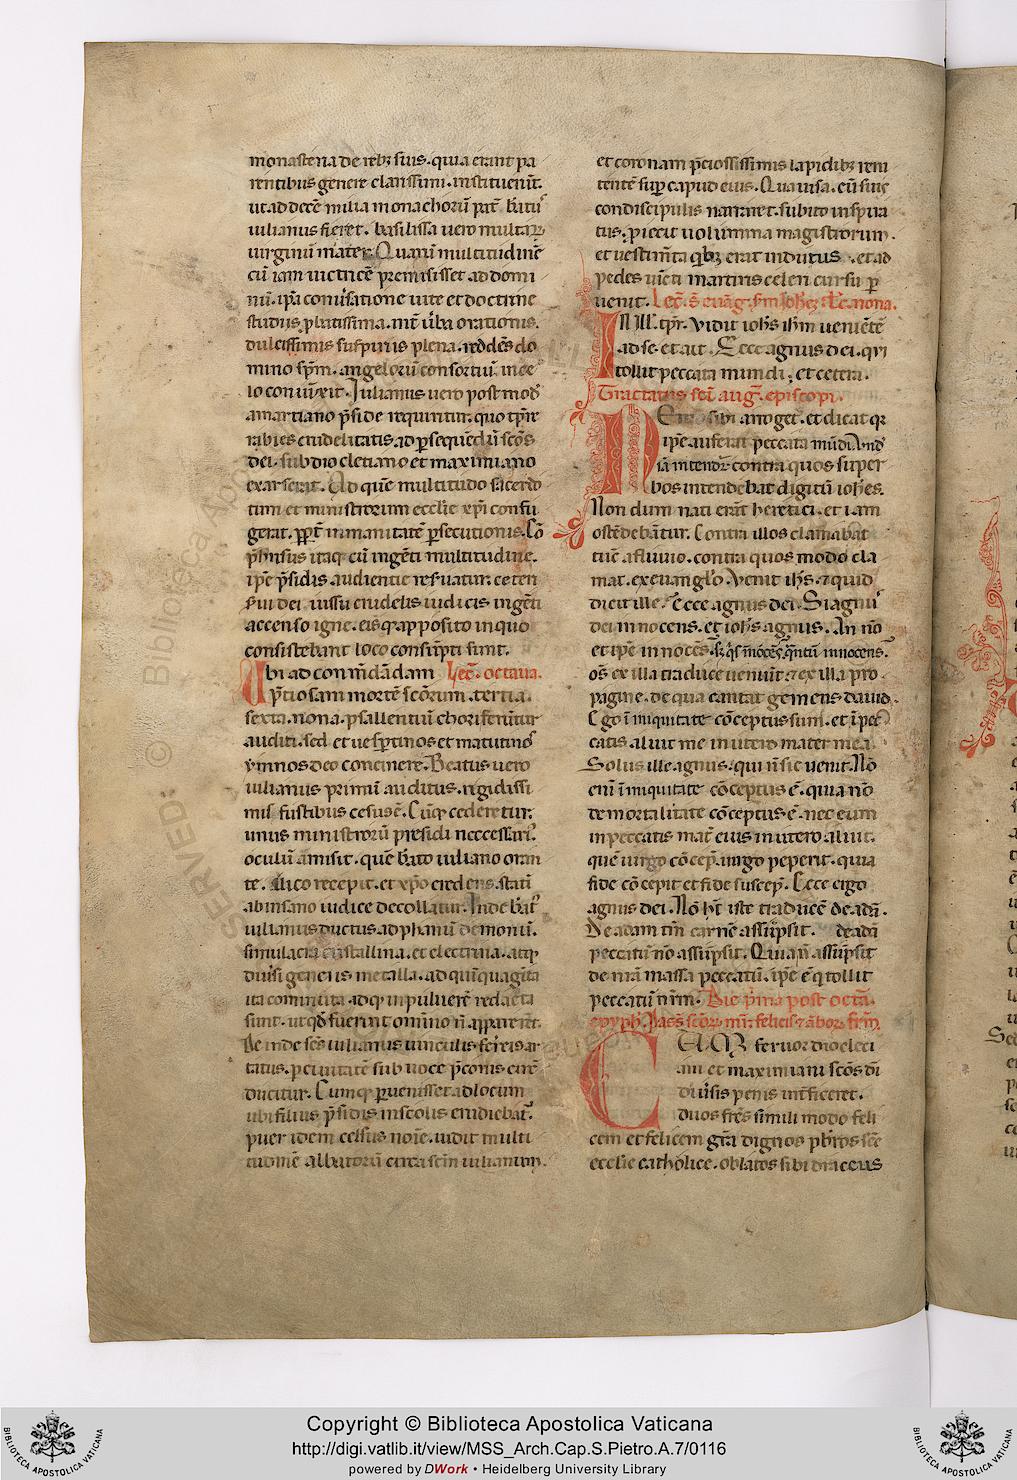 monasteria de rebꝫ suis. quia erant pa
rentibus genere clarissimi. instituerūt.
ut ad decē milia monachoꝝ pater b̄atus
iulianus fieret. basilissa uero multaꝝ
uirginū mater. Quarū multitudinē
cū iam uictricē premisisset ad domi
nū. ip̄a conuersatione uite et doctrine
studiis ꝓbatissima. int̄ uerba orationis.
dulcissimis suspiriis plena. reddēs do
mino sp̄m. angelorū consortiū in ce
lo conuixit. Iulianus uero post modū
a martiano p̄side requiritur. quo tp̄re
rabies crudelitatis. ad ꝑsequēdū sc̄os
dei. sub diocletiano et maximiano
exarserat. Ad quē multitudo sacerdo
tum et ministrorum ecclie xp̄i confu
gerat. ꝓpt̄ inmanitatē ꝑsecutionis. Cō
p̄hensus itaqꝫ cū ingēti multitudine.
ip̄e p̄sidis audientie reseruatur. ceteri
serui dei iussu crudelis iudicis ingēti
accenso igne. eisqꝫ apposito in quo
consistebant loco consūpti sunt.
Vbi ad conmēdādam Lec̄. octaua.
p̄tiosam mortē sc̄orum. tertia.
sexta. nona. psallentiū chori feruntur
auditi. sed et uesp̄tinos et matutinos
ymnos deo concinere. Beatus uero
iulianus primū auditus. rigidissi
mis fustibus cesus ē. Cūqꝫ cederetur.
unus ministrorū presidi necessari⁹.
oculū amisit. quē b̄ato iuliano oran
te. ilico recepit. et xp̄o credens. statī
ab insano iudice decollatur. Inde b̄at⁹
iulianus ductus ad phanū demoniū.
simulacra cristallina. et electrina. atqꝫ
diuersi generis metalla. ad quīquagīta
ita cominuta. adqꝫ in puluerē redacta
sunt. ut qd̄ fuerint omīno nō appareret.
De inde sc̄s iulianus uinculis ferreis ar
tatus. ꝑ ciuitatē sub uoce p̄conis circū
ducitur. Cumqꝫ ꝑuenisset ad locum
ubi filius p̄sidis in scolis erudiebat⁹.
puer idem celsus noīe. uidit multi
tudinē albatorū circa sc̄m iulianum.
et coronam p̄ciosissimis lapidibꝫ reni
tentē suꝑ capud eius. Qua uisa. cū suis
condiscipulis narraret. subito inspira
tus. ꝓiecit uolumina magistrorum.
et uestimēta qbꝫ erat indutus. et ad
pedes uiēti martiris celeri cursu ꝑ
uenit. Lec̄. s. euāg. sm̄ ioh̄ez. Lc̄. nona.
IN illo tp̄r. Vidit iohs ih̄m ueniētē
ad se. et ait. Ecce agnus dei. qui
tollit peccata mundi; et cetera.
Tractatus sc̄i aug. episcopi.
Nemo sibi arroget. et dicat qꝫ
ip̄e auferat peccata mūdi. Vnde
iā intendit contra quos super
bos intendebat digitū iohes.
Non dum nati erāt heretici. et iam
ostēdebātur. Contra illos clamabat
tūc a fluuio. contra quos modo cla
mat. ex euanglio. Venit ihs. ⁊ quid
dicit ille. Ecce agnus dei. Si agnus
dei innocens. et iohs agnus. An nō
et ip̄e innocēs. sꝫ qs̄ innocēs. q̄ntū innocens.
oēs ex illa traduce ueniūt. ⁊ ex illa pro
pagine. de qua cantat gemens dauid.
Ego ī iniquitate cōceptus sum. et ī pec
catis aluit me in utero mater mea.
Solus ille agnus. qui nō sic uenit. Nō
enī ī iniquitate cōceptus ē. quia nō
de mortalitate cōceptus ē. nec eum
in peccatis mat̄ eius in utero aluit.
quē uirgo cōcep̄. uirgo peperit. quia
fide cōcepit et fide suscep̄. Ecce ergo
agnus dei. Nō ht̄ iste traducē de adā.
De adam tm̄ carnē assūpsit. de adā
peccatū nō assūpsit. Qui nō assūpsit
de nr̄a massa peccatū. ip̄e ē q̄ tollit
peccatū nr̄m. Die p̄ma post octā.
epyph̄. Pass̄ sc̄orꝫ mr̄. felicis ⁊ aborꝫ frm̄.
CVM feruor diocleci
ani et maximiani sc̄os dī
diuersis penis intꝑficeret.
duos frēs simili modo feli
cem et felicem gr̄a dignos p̄biros sc̄e
ecclie catholice. oblatos sibi draccus
Copyright © Biblioteca Apostolica Vaticana
http://digi.vatlib.it/view/MSS_Arch.Cap.S.Pietro.A.7/0116
powered by DWork • Heidelberg University Library